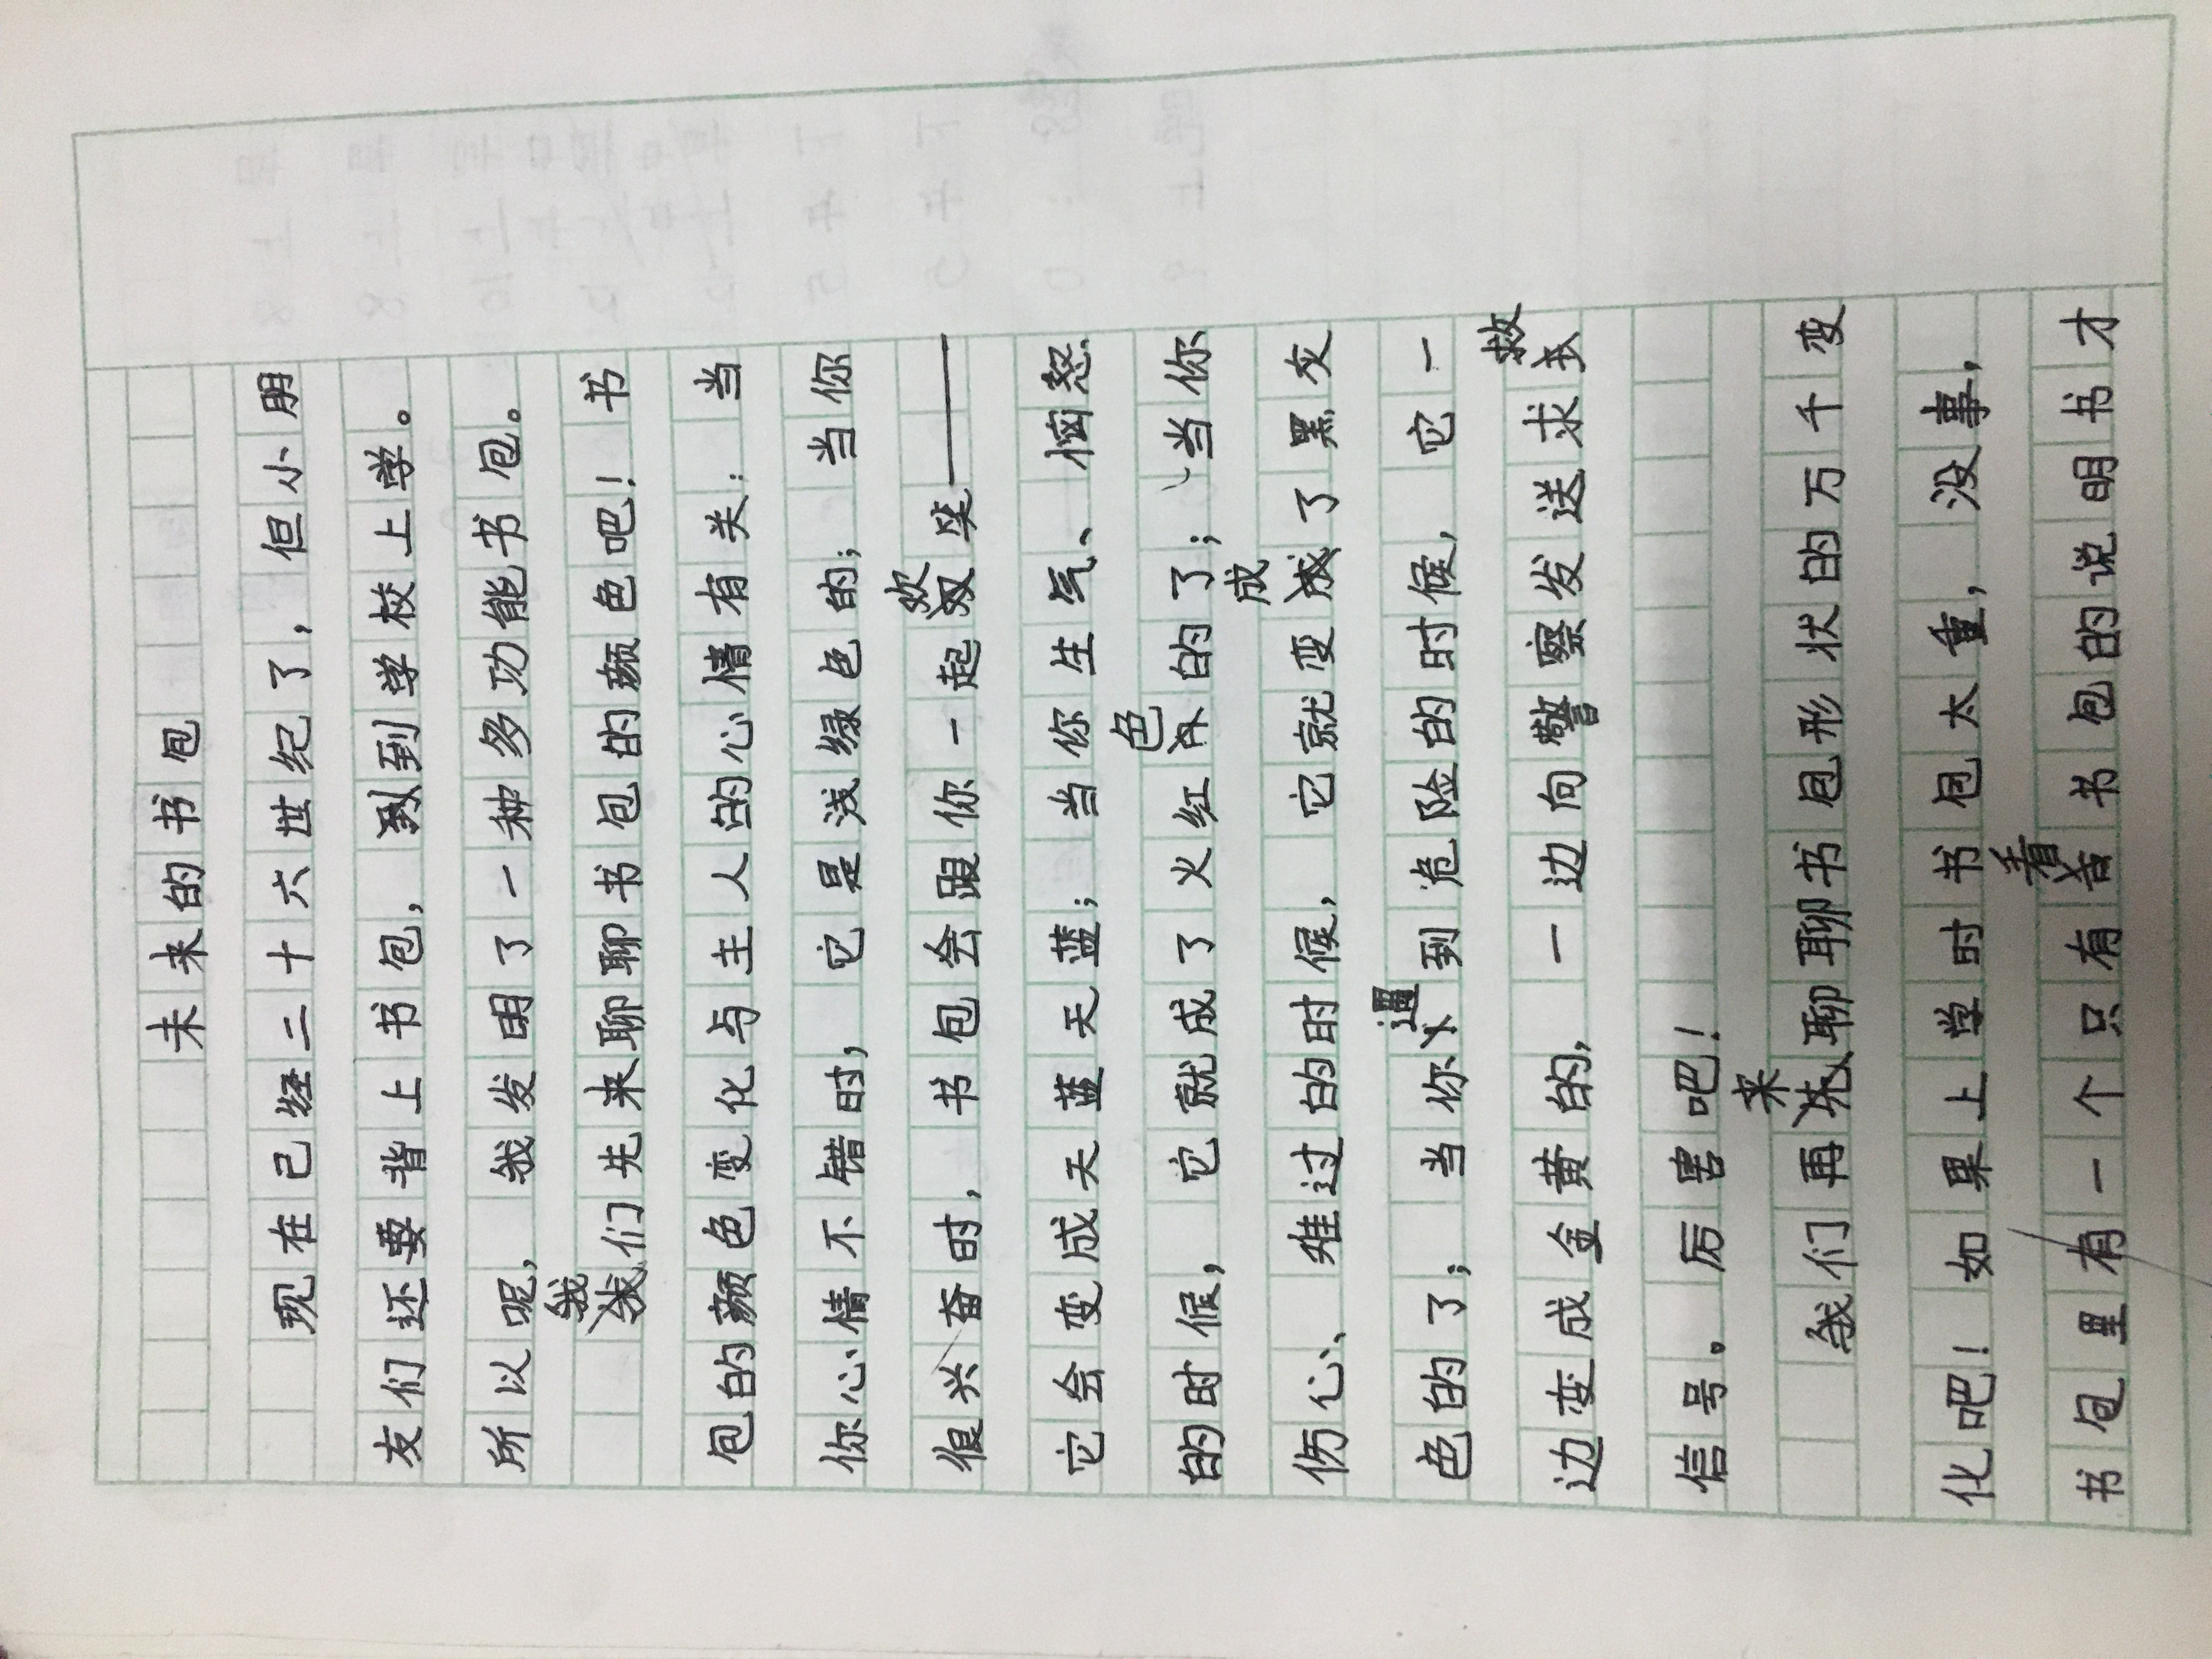 未来的书包
现在已经二十六世纪了，但小朋
友们还要背上书包，到学校上学。
所以呢，我发明了一种多功能书包。
我们先来聊聊书包的颜色吧！书
包的颜色变化与主人的心情有关：当
你心情不错时，它是浅绿色的；当你
很兴奋时，书包会跟你一起欢笑——
它会变成天蓝天蓝；当你生气、恼怒
的时候，它就成了火红色的了；当你
伤心、难过的时候，它就变成了黑灰
色的了；当你遇到危险的时候，它一
边变成金黄的，一边向警察发送求救
信号。厉害吧！
我们再来聊聊书包形状的万千变
化吧！如果上学时书包太重，没事，
书包里有一个只有看书包的说明书才